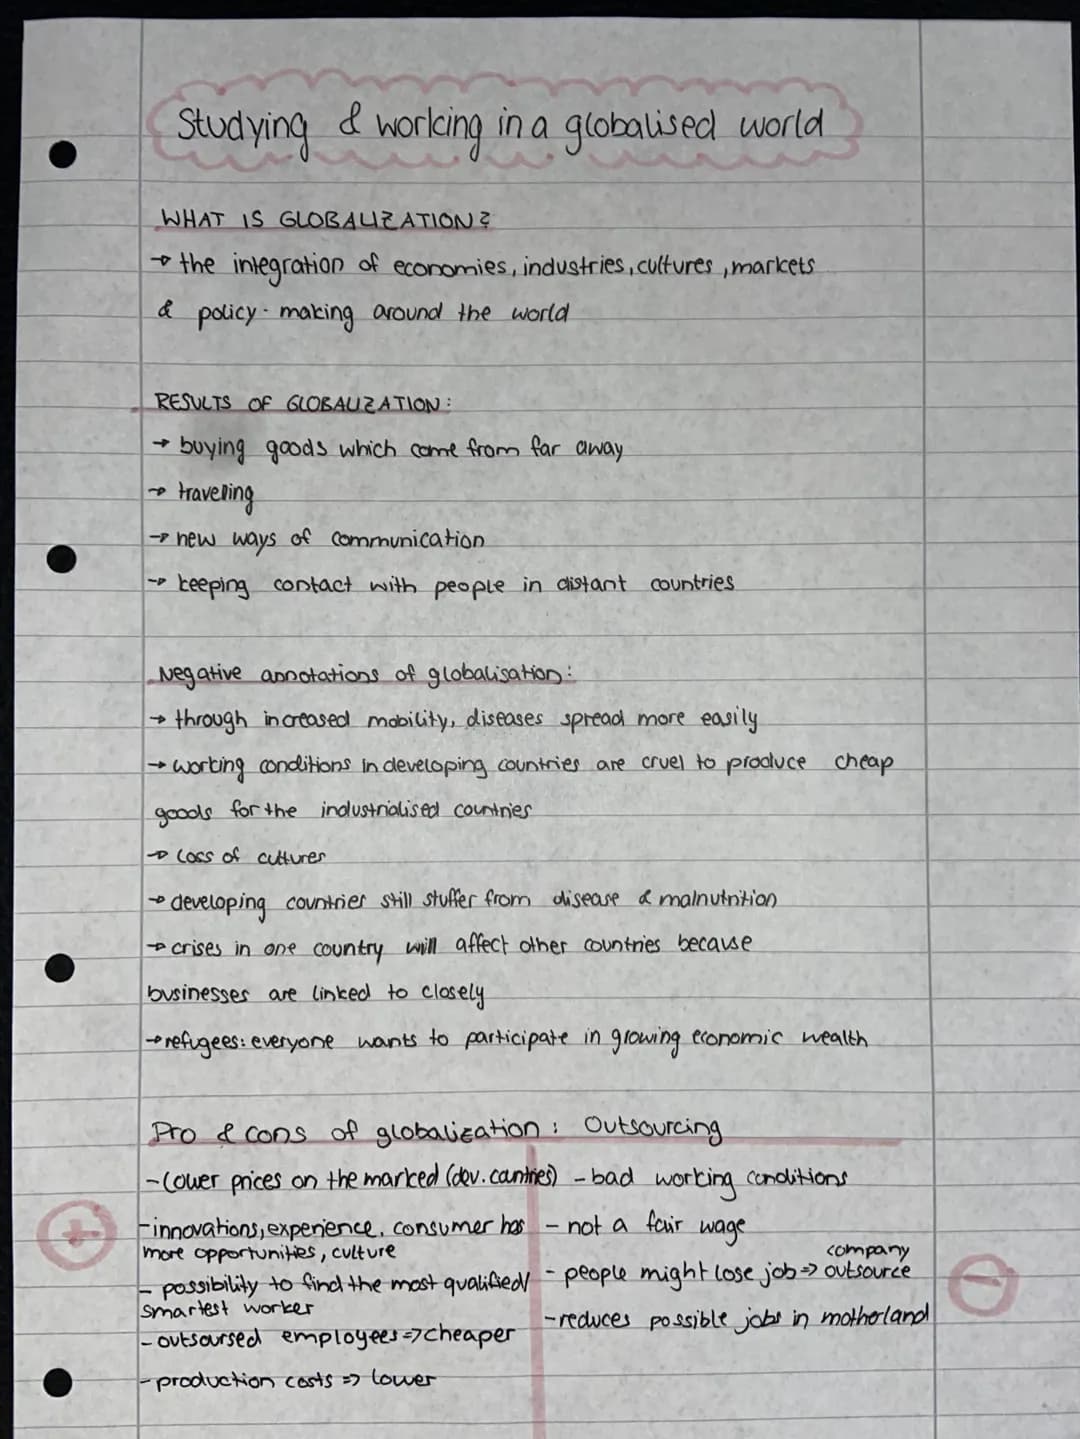 Studying & working in a globalised world
WHAT IS GLOBALIZATION?
→ the integration of economies, industries, cultures, markets
& policy-making around the world
RESULTS OF GLOBALIZATION:
→ buying goods which come from far away
→ traveling
→ new ways of communication
→ keeping contact with people in distant countries
Negative annotations of globalisation:
→ through increased mobility, diseases spread more easily
→ working conditions in developing countries are cruel to produce cheap
goods for the industrialised countries
→ Loss of cultures
→ developing countries still stuffer from disease & malnutrition
→ crises in one country will affect other countries because
businesses are linked to closely
→ refugees: everyone wants to participate in growing economic wealth
Pro & cons of globalization: Outsourcing
+
- Lower prices on the marked (dev. cantries)
- innovations, experience, consumer has
more opportunities, culture
- possibility to find the most qualified/
smartest worker
- outsoursed employees => cheaper
- production costs => lower
-
- bad working conditions
- not a fair wage
- people might lose job => company outsource
- reduces possible jobs in motherland